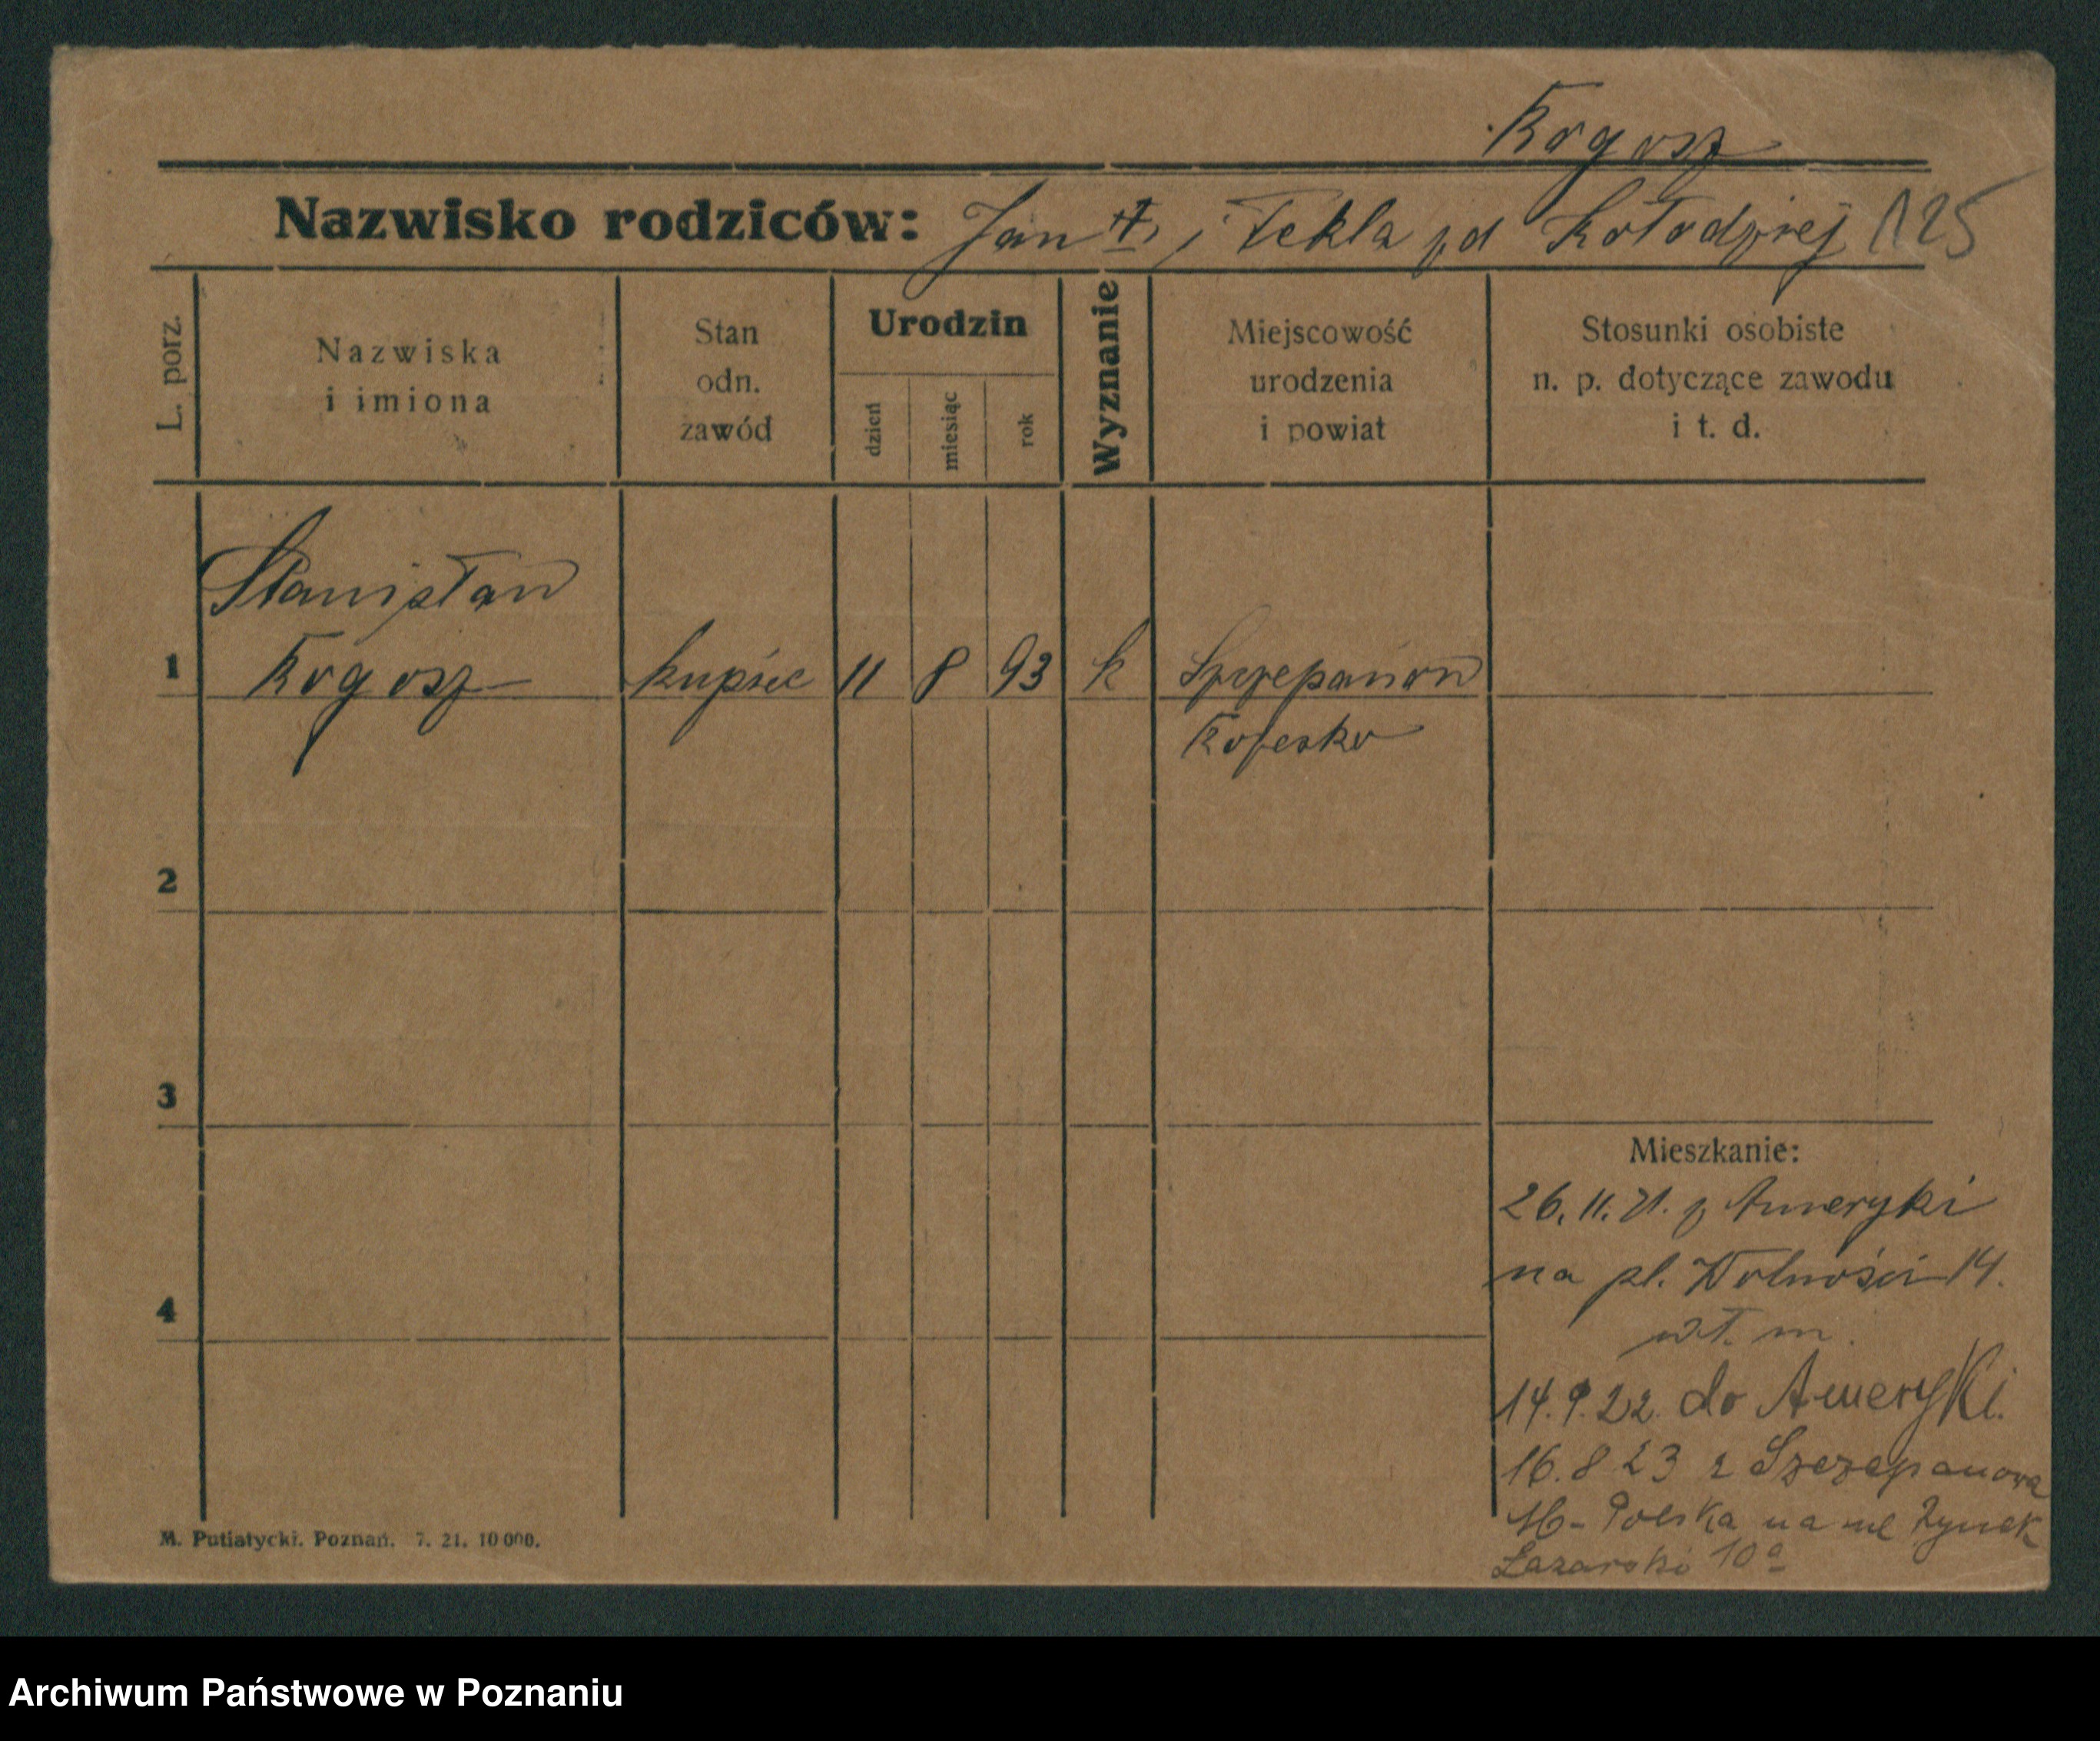 Rogosz
Nazwisko rodziców: Jan †, i Tekla zd Kołodziej 125
L. porz.
Nazwiska
i imiona
Stan
odn.
zawód
Urodzin
dzień
miesiąc
rok
Wyznanie
Miejscowość
urodzenia
i powiat
Stosunki osobiste
n. p. dotyczące zawodu
i t. d.
Stanisław
1 Rogosz kupiec 11 8 93 k Szczepanów
2
3
4
Mieszkanie:
26. 11. 21. z Ameryki
na pl. Wolności 14.
wł. m.
14. 9. 22. do Ameryki.
16. 8 23 z Szczepanowa
M- Polska na ul Rynek
Łazarski 10a
M. Putiatycki. Poznań. 7. 21. 10 000.
Archiwum Państwowe w Poznaniu